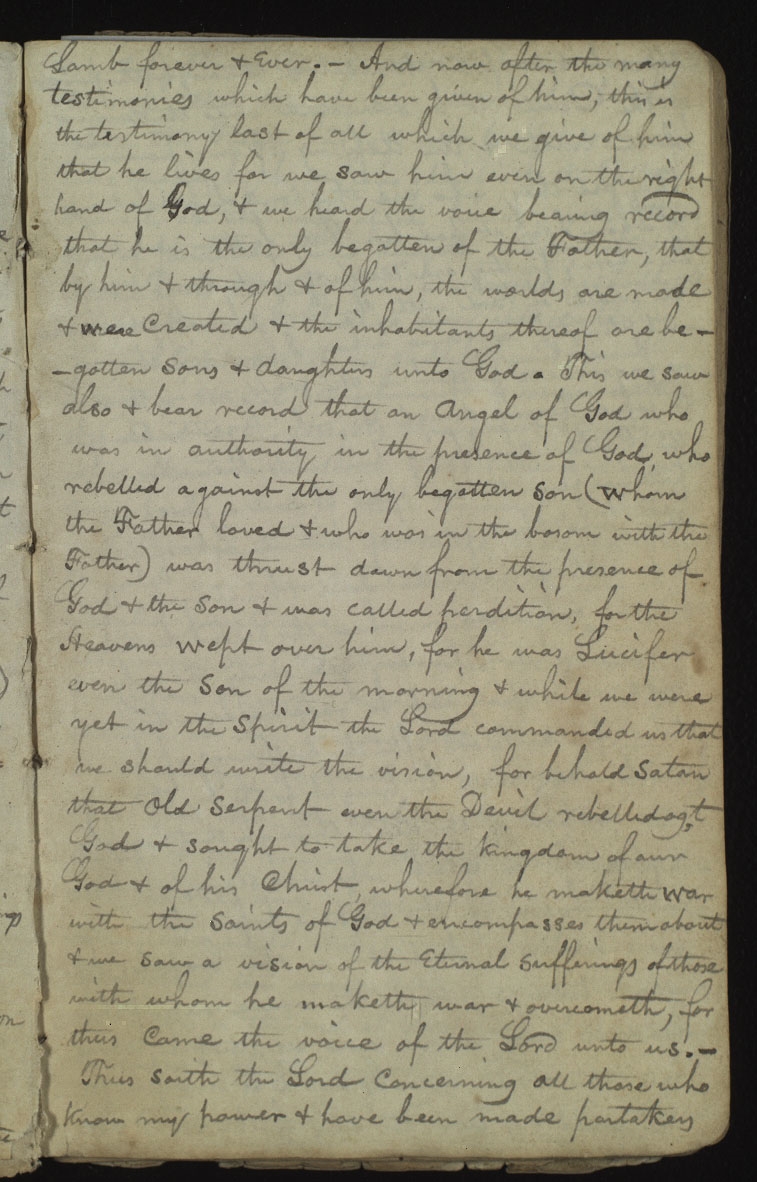 Lamb forever & Ever. – And now after the many
testimonies which have been given of him, this is
the testimony last of all which we give of him
that he lives for we saw him even on the right
hand of God, & we heard the voice bearing record
that he is the only begotten of the Father, that
by him & through & of him, the worlds are made
& were Created & the inhabitants thereof are be–
–gotten Sons & daughters unto God. This we saw
also & bear record that an Angel of God who
was in authority in the presence of God, who
rebelled against the only begotten Son (whom
the Father loved & who was in the bosom with the
Father) was thrust down from the presence of
God & the Son & was called perdition, for the
Heavens wept over him, for he was Lucifer
even the Son of the morning & while we were
yet in the Spirit the Lord commanded us that
we should write the vision, for behold Satan
that Old Serpent even the Devil rebelled agt
God & sought to take the kingdom of our
God & of his Christ, wherefore he maketh war
with the Saints of God & encompasses them about
& we saw a vision of the Eternal sufferings of those
with whom he maketh war & overcometh, for
thus Came the voice of the Lord unto us. –
Thus saith the Lord Concerning all those who
know my power & have been made partakers